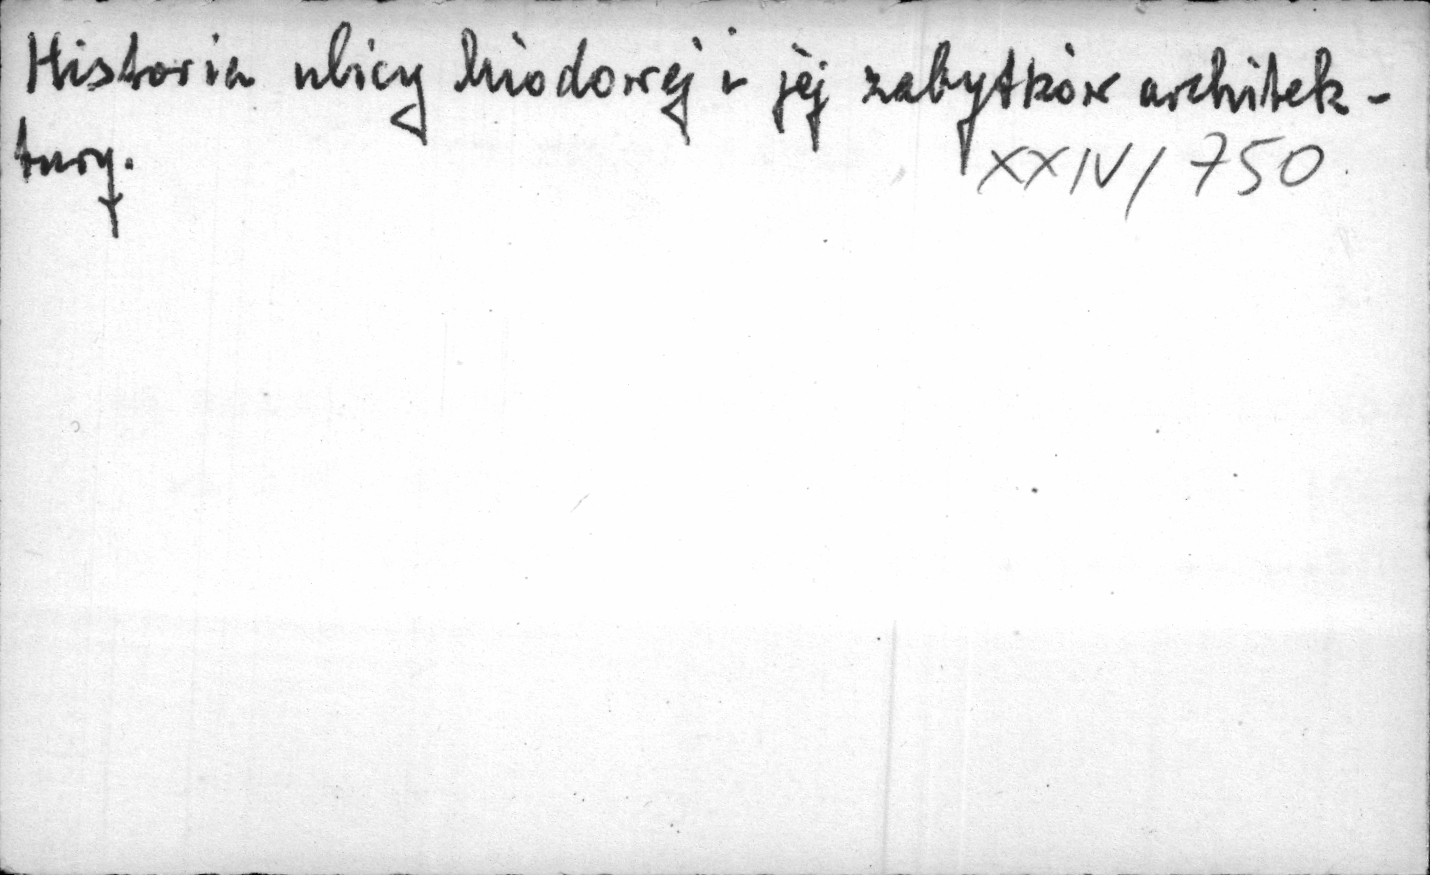 Historia ulicy Miodowej i jej zabytków architek-
tury.
XXIV/750